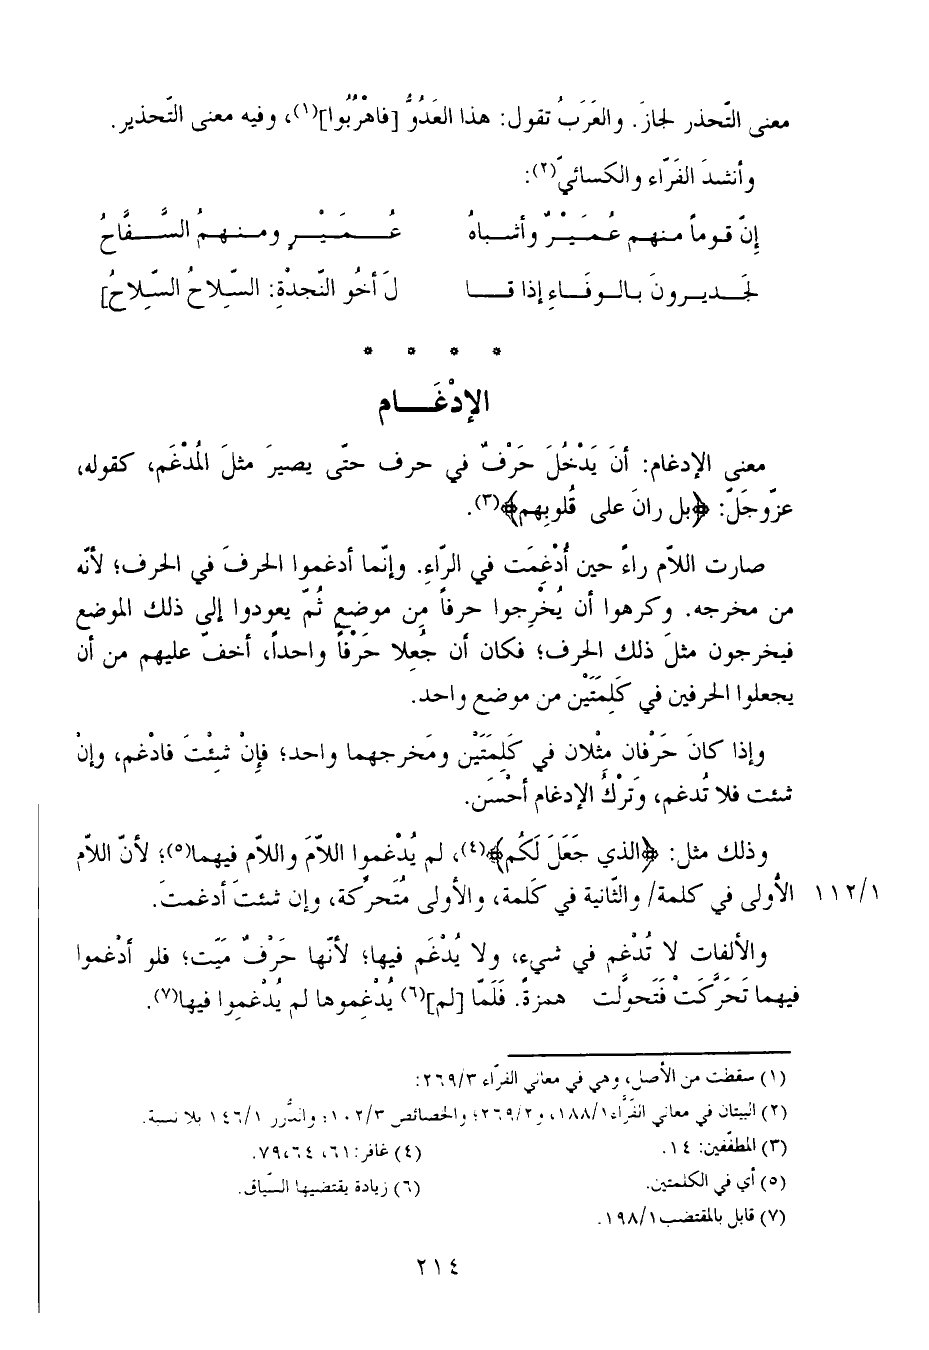 معنى التّحذر لجازَ. والعَرَبُ تقول: هذا العَدُوُّ [فاهْرُبُوا](١)، وفيه معنى التّحذير.
وأنشدَ الفَرّاء والكسائيّ(٢):
إنّ قوماً منهم عُمَيْرٌ وأشباهُ عُمَيْرٍ ومنهمُ السَّفَّاحُ
لَجَديرونَ بالوفَاءِ إذا قا لَ أخُو النّجدْةِ: السِّلاحُ السِّلاحُ]
* * * *
الإدْغَام
معنى الإدغام: أنَ يَدْخُلَ حَرْفٌ في حرف حتّى يصيرَ مثلَ المُدْغَم، كقوله،
عزّوجَلّ: ﴿بل رانَ على قُلوبِهم﴾(٣).
صارت اللاّم راءً حين أُدْغِمَت في الرّاءِ. وإنّما أدغموا الحرفَ في الحرف؛ لأنّه
من مخرجه. وكرهوا أن يُخْرِجوا حرفاً مِن موضعٍ ثُمّ يعودوا إلى ذلك الموضع
فيخرجون مثلَ ذلك الحرف؛ فكان أن جُعلا حَرْفاً واحداً، أخفّ عليهم من أن
يجعلوا الحرفين في كَلِمَتَيْن من موضع واحد.
وإذا كانَ حَرْفان مِثْلان في كَلِمَتَيْن ومَخرجهما واحد؛ فإِنْ شِئْتَ فادْغم، وإنْ
شئت فلا تُدغم، وَتَرْكُ الإدغام أحْسَن.
وذلك مثل: ﴿الذي جَعَلَ لَكُم﴾(٤)، لم يُدْغموا اللاّمَ واللاّم فيهما(٥)؛ لأنّ اللاّم
١١٢/١ الأُولى في كلمة/ والثّانية في كَلمة، والأولى مُتَحركّة، وإن شئتَ أدغمتَ.
والألفات لا تُدْغم في شيء، ولا يُدْغَم فيها؛ لأنّها حَرْفٌ مَيّت؛ فلو أدْغموا
فيهما تَحَرَّكَتْ فَتَحوَّلت همزةً. فَلَمّا [لم](٦) يُدْغِموها لم يُدْغِموا فيها(٧).
(١) سقطت من الأصل، وهي في معاني الفرّاء ٢٦٩/٣:
(٢) البيتان في معاني الفَرّاء ١٨٨/١، و٢٦٩/٢؛ والخصائص ١٠٢/٣؛ والدُّرر ١٤٦/١ بلا نسبة.
(٣) المطفّفين: ١٤. (٤) غافر: ٦١، ٦٤، ٧٩.
(٥) أي في الكلمتين. (٦) زيادة يقتضيها السّياق.
(٧) قابل بالمقتضب ١٩٨/١.
٢١٤